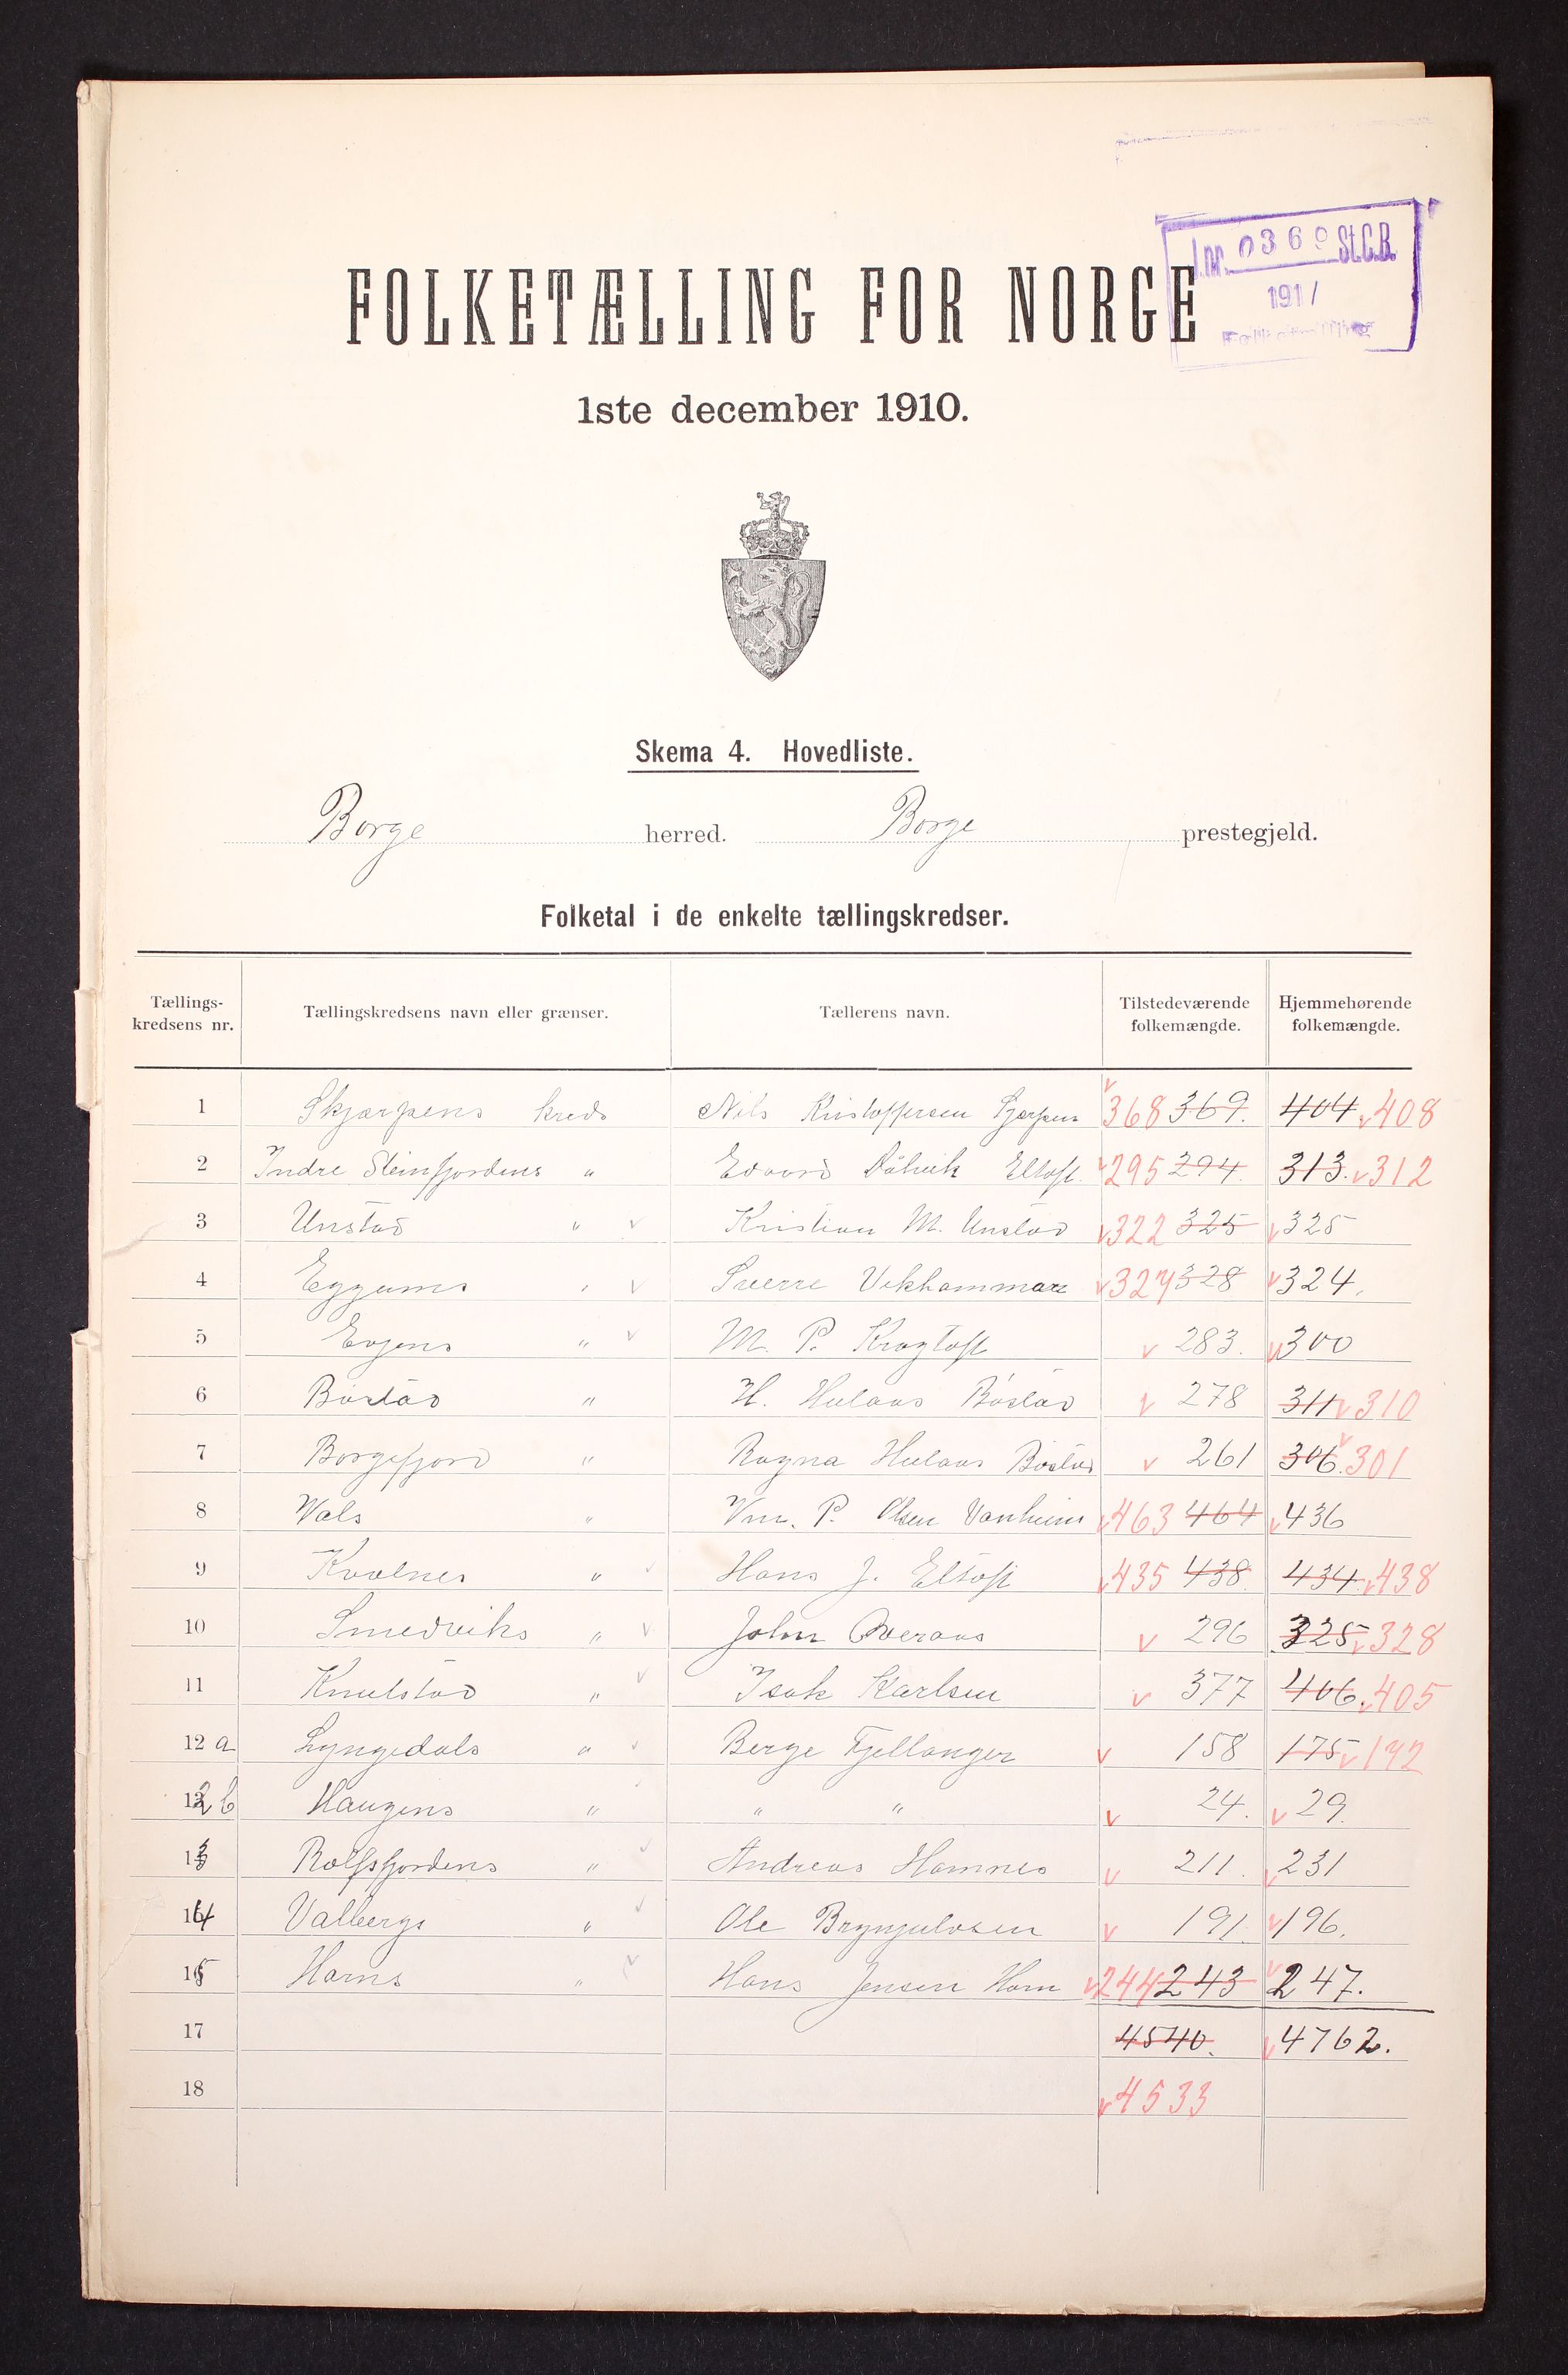 J.nr. 0369 St.C.B.
1911
Folketælling
FOLKETÆLLING FOR NORGE
1ste december 1910.
Skema 4. Hovedliste.
Borge herred. Borge prestegjeld.
Folketal i de enkelte tællingskredser.
Tællings-kredsens nr. Tællingskredsens navn eller grænser. Tællerens navn. Tilstedeværende folkemængde. Hjemmehørende folkemængde.
1 Skjærpens kreds Nils Kristoffersen 368 369. 404 408
2 Indre Steinfjordens " Edvard Eltoft. 295 294. 313. 312
3 Unstad " Kristian M. Unstad 322 325 325
4 Eggums " Sverre Vikhammar 327 328 324.
5 Evjens " M. P. Kragtoft 283. 300
6 Bøstad " H. Hulaas Bøstad 278 311 310
7 Borgefjord " Ragna Hulaas Bøstad 261 306. 301
8 Vals " P. Olsen 463 464 436
9 Kvalnes " Hans J. Eltoft 435 438. 434. 438
10 Smedviks " John Overaas 296 325 328
11 Knutstad " Isak Karlsen 377 406. 405
12 a Lyngedals " Berge Fjellanger 158 175 172
12 b Haugens " " " 24. 29.
13 Rolfsfjordens " Andreas Hamnes 211. 231
14 Valbergs " Ole Brynjulvsen 191. 196.
15 Hams " Hans Jensen Ham 244 243 247.
17 4540. 4762.
18 4533